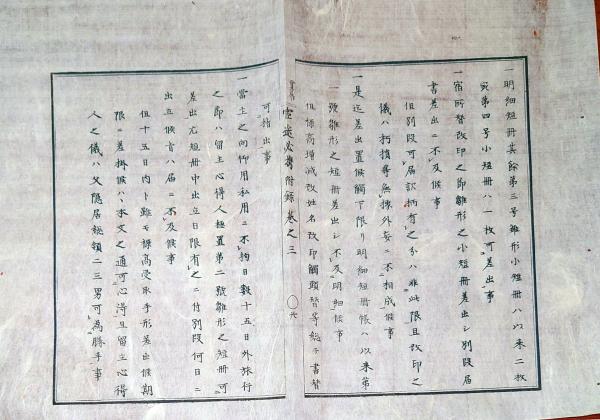 一明細短冊其餘第三号雛形小短冊ハ以来二枚
宛第四号小短冊ハ一枚可差出事
一宿所替改印之節雛形之小短冊差出シ別段届
書差出ニ不及候事
但別段可届訳柄有之分ハ非此限且改印之
儀ハ朽損等無據外妄ニ不相成候事
一是迄差出置候觸下限リ明細短冊帳ハ以来第
一號雛形之短冊差出シ不及明細候事
但様高増減改姓名改印觸頭替等総テ書替
可指出事
必携附録巻之三
一當主之向御用私用ニ不拘日数十五日外旅行
之節ハ留主心得人極置第二號雛形之短冊可
差出尤短冊中出立日限有之ニ付別段何日ニ
出立候旨ハ届ニ不及候事
但十五日内ト雖モ様高受取手形差出候期
限ニ差掛候ハヽ本文之通可心得且留主心得
人之儀ハ父隠居総領二三男可為勝手事